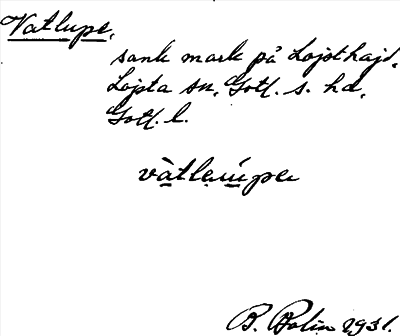 Vatlupe,
sank mark på Lojsthajd,
Lojsta sn, Gotl. s. hd,
Gotl. l.
vàtleúpe
B. Bolin 1931.